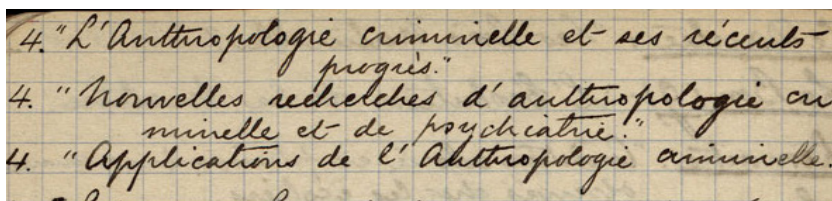 4. "L'Anthropologie criminelle et ses récents
progrès."
4. "Nouvelles recherches d'anthropologie cri
minelle et de psychiatrie."
4. "Applications de l'Anthropologie criminelle.